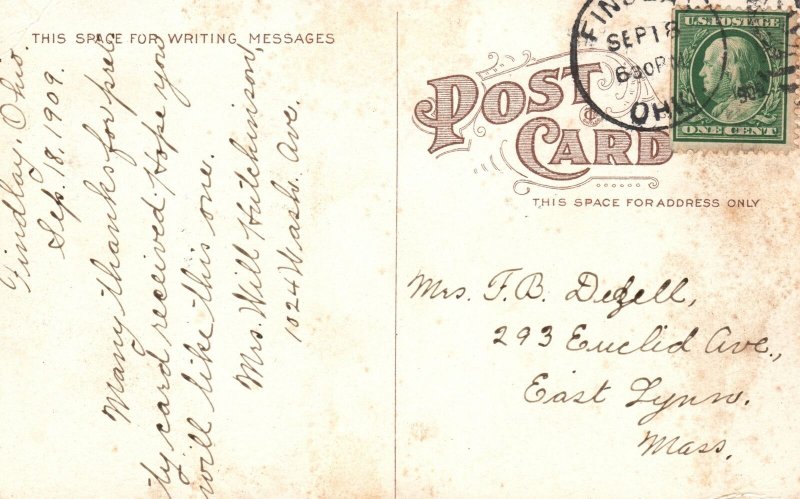 THIS SPACE FOR WRITING MESSAGES
Findlay, Ohio.
Sep. 18, 1909.
Many thanks for pret-
ty card received. Hope you
will like this one.
Mrs. Will Hutchinson,
1024 Wash. Ave.
FINDLAY
SEP 18
630 PM
OHIO
U.S. POSTAGE
ONE CENT
POST
CARD
THIS SPACE FOR ADDRESS ONLY
Mrs. F. B.
293 Euclid Ave.,
East Lynn.
Mass.